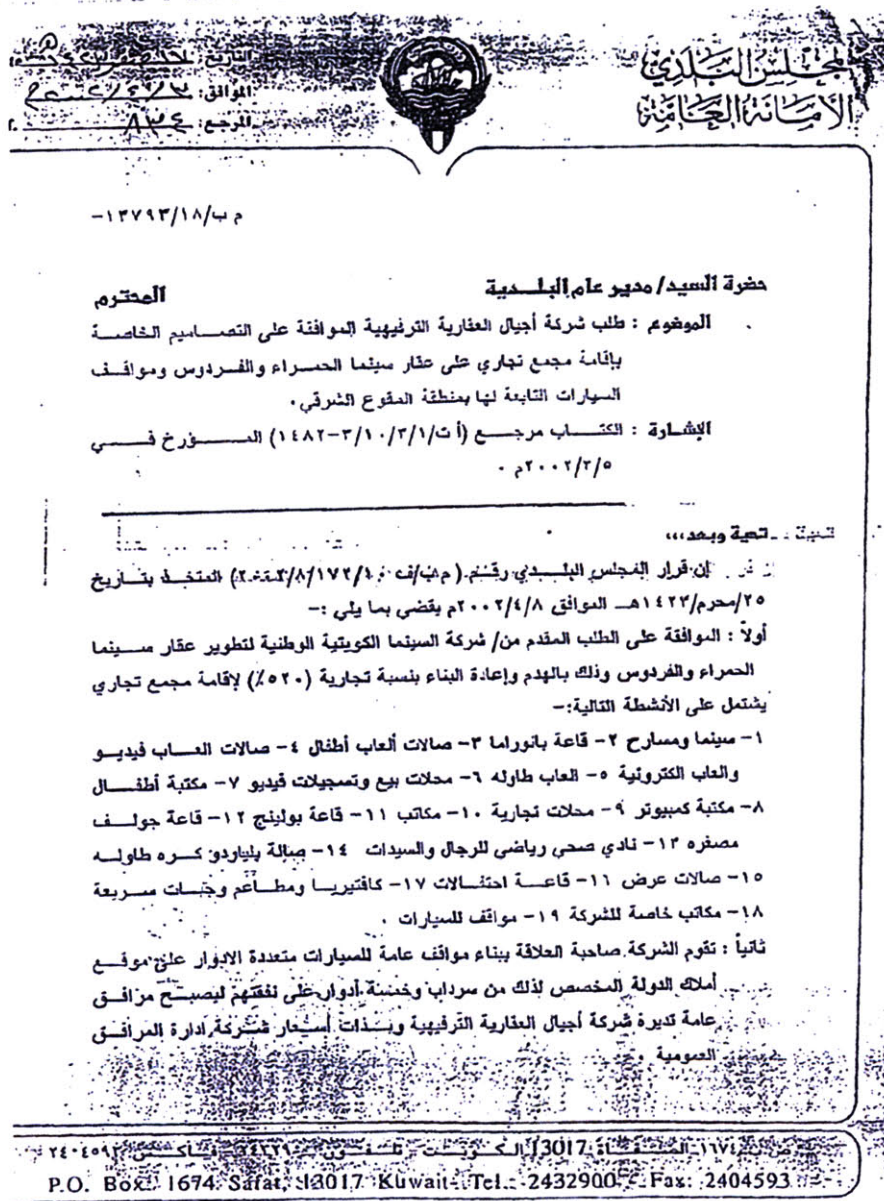 المجلس البلدي
الأمانة العامة
التاريخ:
الموافق:
المرجع: ٨٣٤
م ب/١٣٧٩٣/١٨-
حضرة السيد/ مدير عام البلـــدية المحترم
الموضوع : طلب شركة أجيال العقارية الترفيهية الموافقة على التصـــاميم الخاصـــة
بإقامة مجمع تجاري على عقار سينما الحمـــراء والفـــردوس ومواقـــف
السيارات التابعة لها بمنطقة المقوع الشرقي.
الإشـــارة : الكتـــاب مرجـــع (أ ت/٣/١٠/٣/١-١٤٨٢) المـــؤرخ فـــي
٢٠٠٢/٣/٥م .
تحية وبعد،،،
إن قرار المجلس البلـــدي رقـــم المتخـــذ بتـــاريخ
٢٥/محرم/١٤٢٣هـــ الموافق ٢٠٠٢/٤/٨م يقضي بما يلي :-
أولاً : الموافقة على الطلب المقدم من/ شركة السينما الكويتية الوطنية لتطوير عقار ســـينما
الحمراء والفردوس وذلك بالهدم وإعادة البناء بنسبة تجارية (٥٢٠٪) لإقامة مجمع تجاري
يشتمل على الأنشطة التالية:-
١- سينما ومسارح ٢- قاعة بانوراما ٣- صالات ألعاب أطفال ٤- صالات العـــاب فيديـــو
والعاب الكترونية ٥- العاب طاوله ٦- محلات بيع وتسجيلات فيديو ٧- مكتبة أطفـــال
٨- مكتبة كمبيوتر ٩- محلات تجارية ١٠- مكاتب ١١- قاعة بولينج ١٢- قاعة جولـــف
مصغره ١٣- نادي صحي رياضي للرجال والسيدات ١٤- صالة بلياردو كـــره طاولـــه
١٥- صالات عرض ١٦- قاعـــة احتفـــالات ١٧- كافتيريـــا ومطـــاعم وجبـــات ســـريعة
١٨- مكاتب خاصة للشركة ١٩- مواقف للسيارات .
ثانياً : تقوم الشركة صاحبة العلاقة ببناء مواقف عامة للسيارات متعددة الادوار على موقـــع
أملاك الدولة المخصص لذلك من سرداب وخمسة أدوار على نفقتهم ليصبـــح مرافـــق
عامة تديره شركة أجيال العقارية الترفيهية وبـــذات أسعار شـــركة ادارة المرافـــق
العمومية .
ص.ب ١١٧٤ الصـــفـــاة 13017 الكـــويـــت تلـــفـــون فـــاكـــس ٢٤٠٤٥٩٣
P.O. Box: 1674 Safat, 13017 Kuwait-Tel.: 2432900 - Fax: 2404593